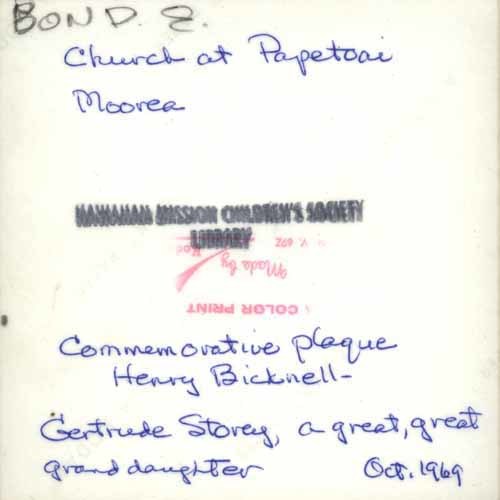 BOND. E.
Church at Papetoai
Moorea
HAWAIIAN MISSION CHILDREN'S SOCIETY
LIBRARY
Made by
COLOR PRINT
Commemorative plaque
Henry Bicknell-
Gertrude Storey, a great, great
granddaughter Oct. 1969